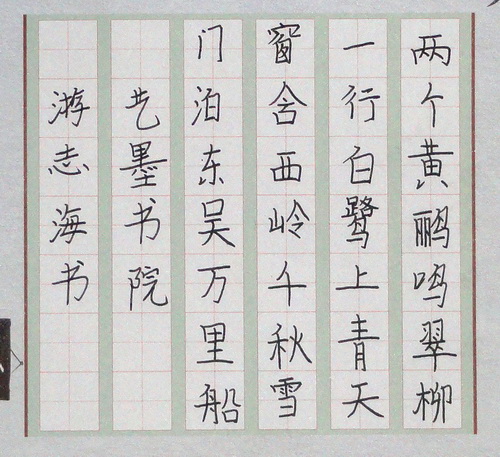 两个黄鹂鸣翠柳
一行白鹭上青天
窗含西岭千秋雪
门泊东吴万里船
艺墨书院
游志海书